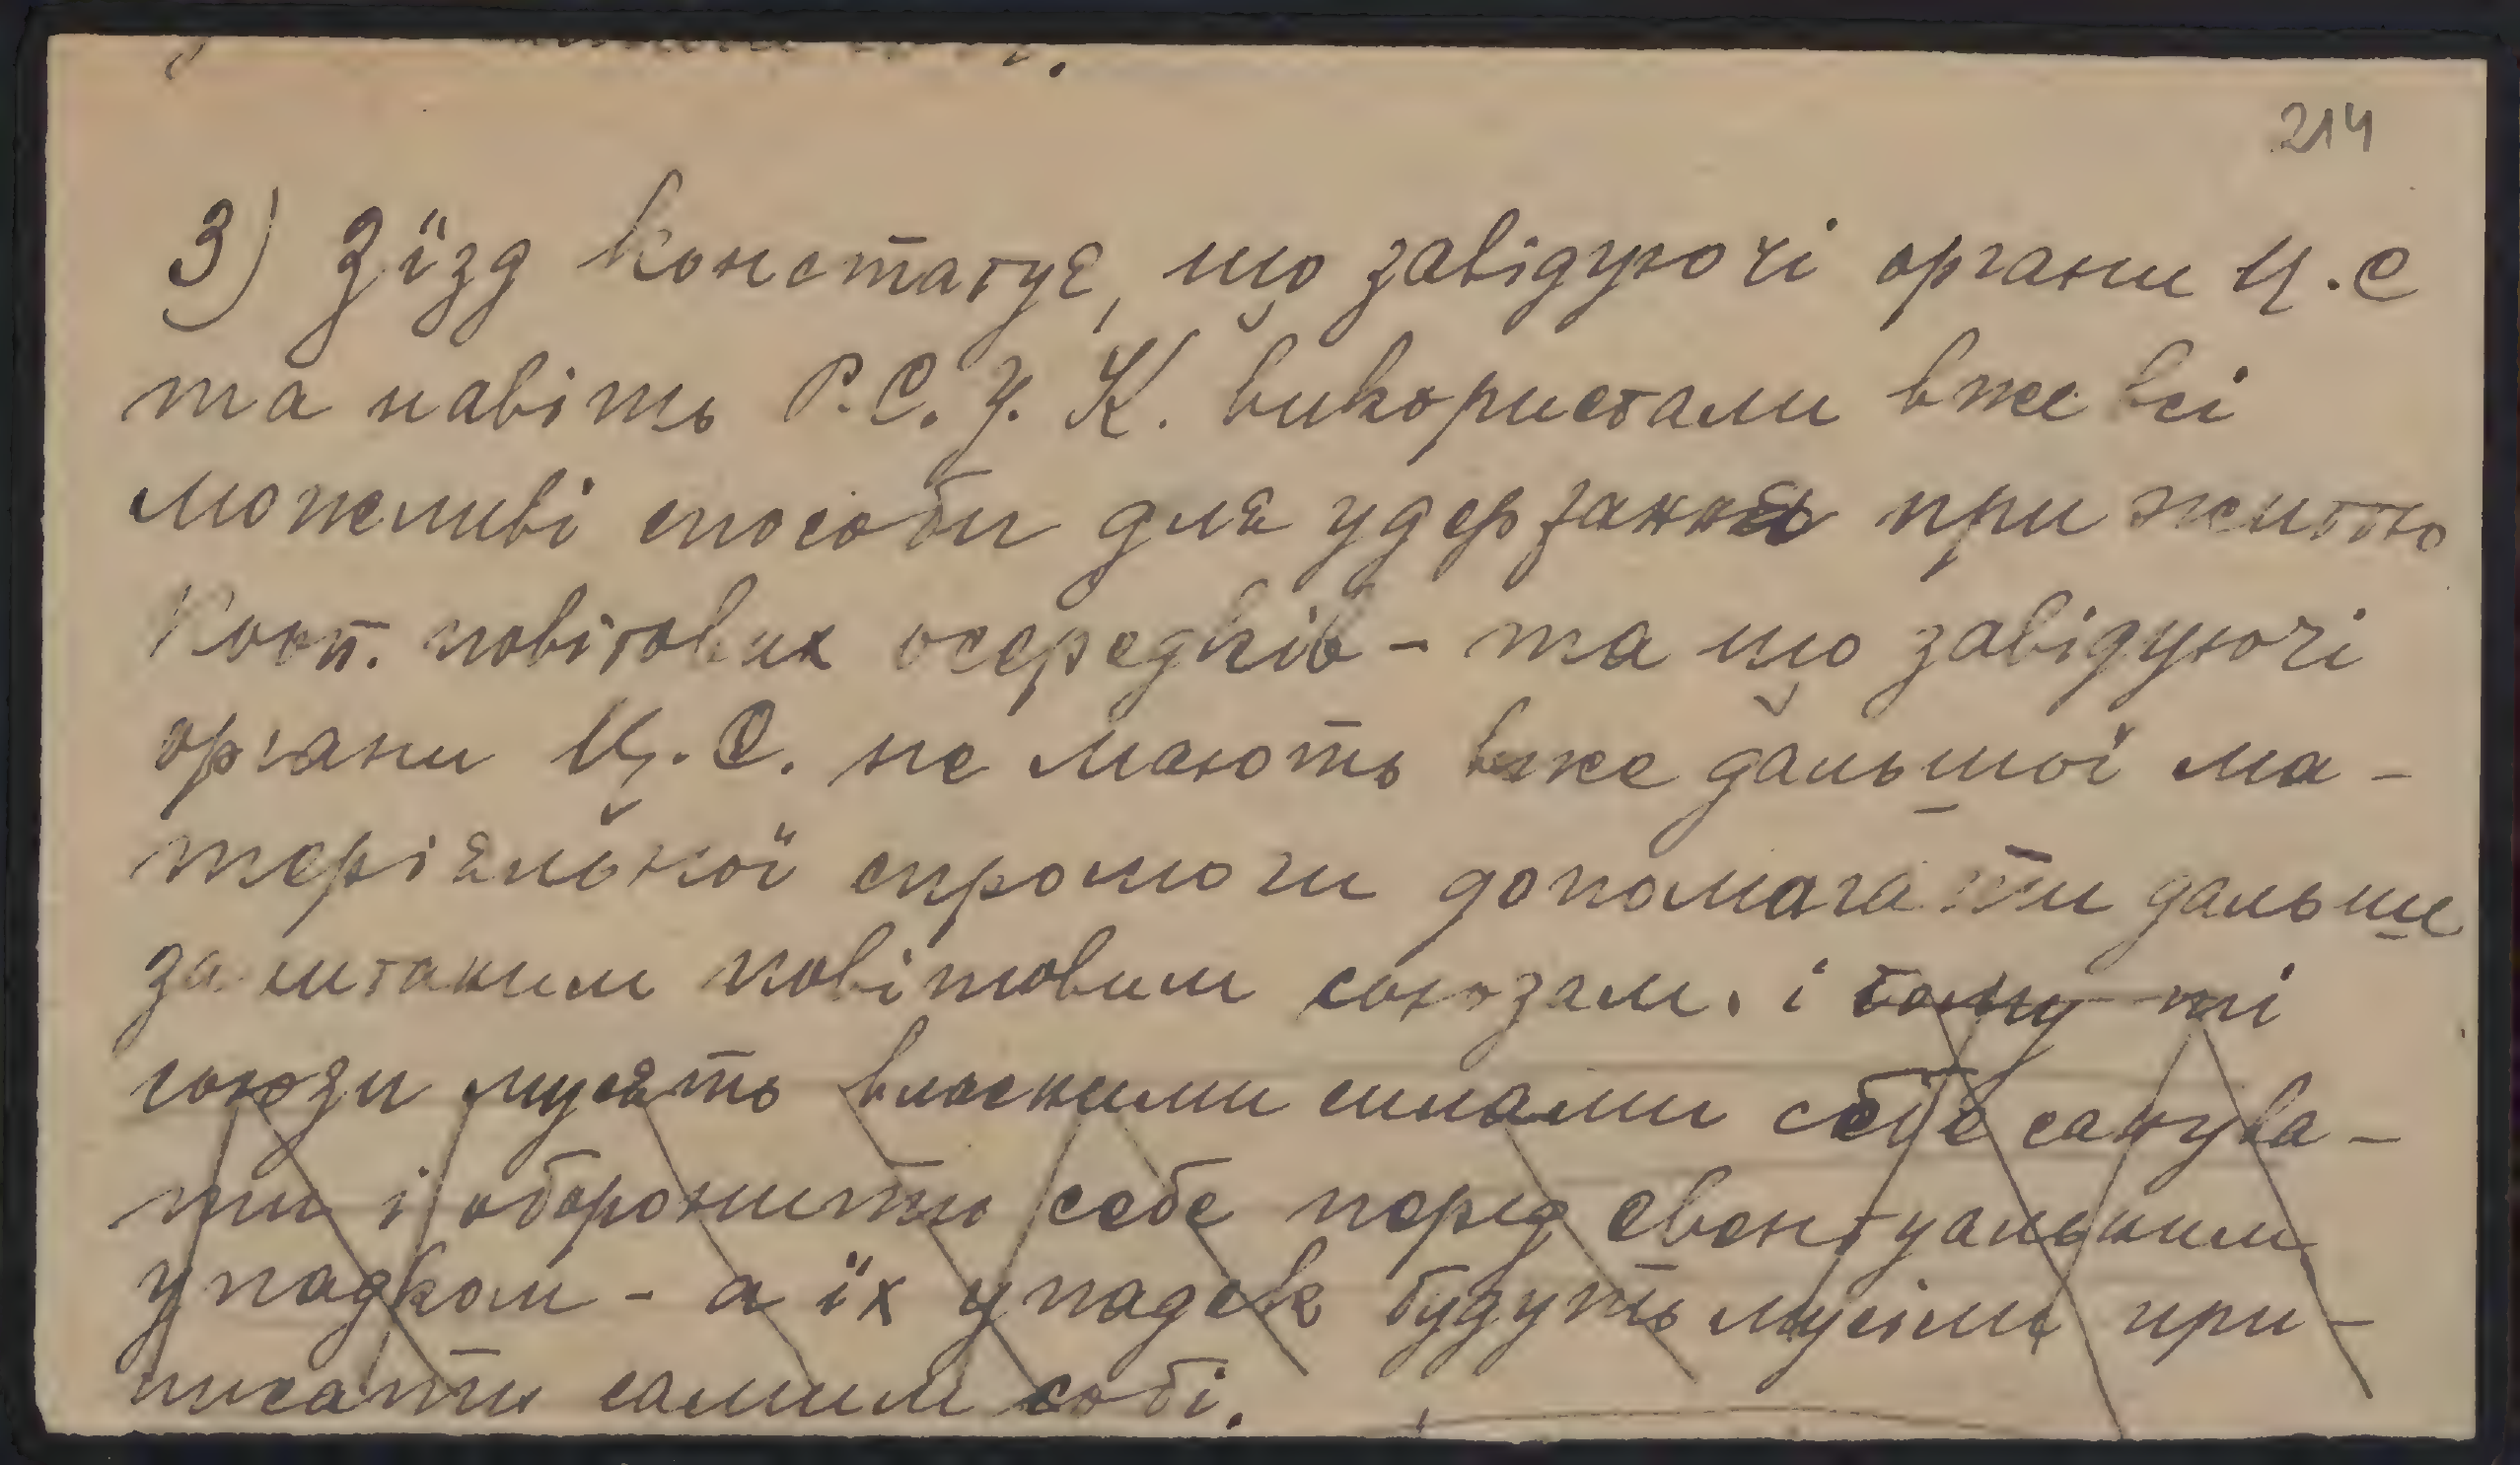 214
3) Зїзд констатує, що завідуючі органи Ц.С
та навіть Р.С.У.К. використали вже всі
можливі способи для удержання при життю
Кооп. повітових осередків - та що завідуючі
органи Ц.С. не мають вже дальшої ма-
теріяльної спромоги допомагати дальше
захитаним повітовим союзам. і тому ті
союзи мусять власними силами себе санува-
ти і оборонити себе перед евентуальним
упадком - а їх упадок будуть мусіли при-
писати самим собі.